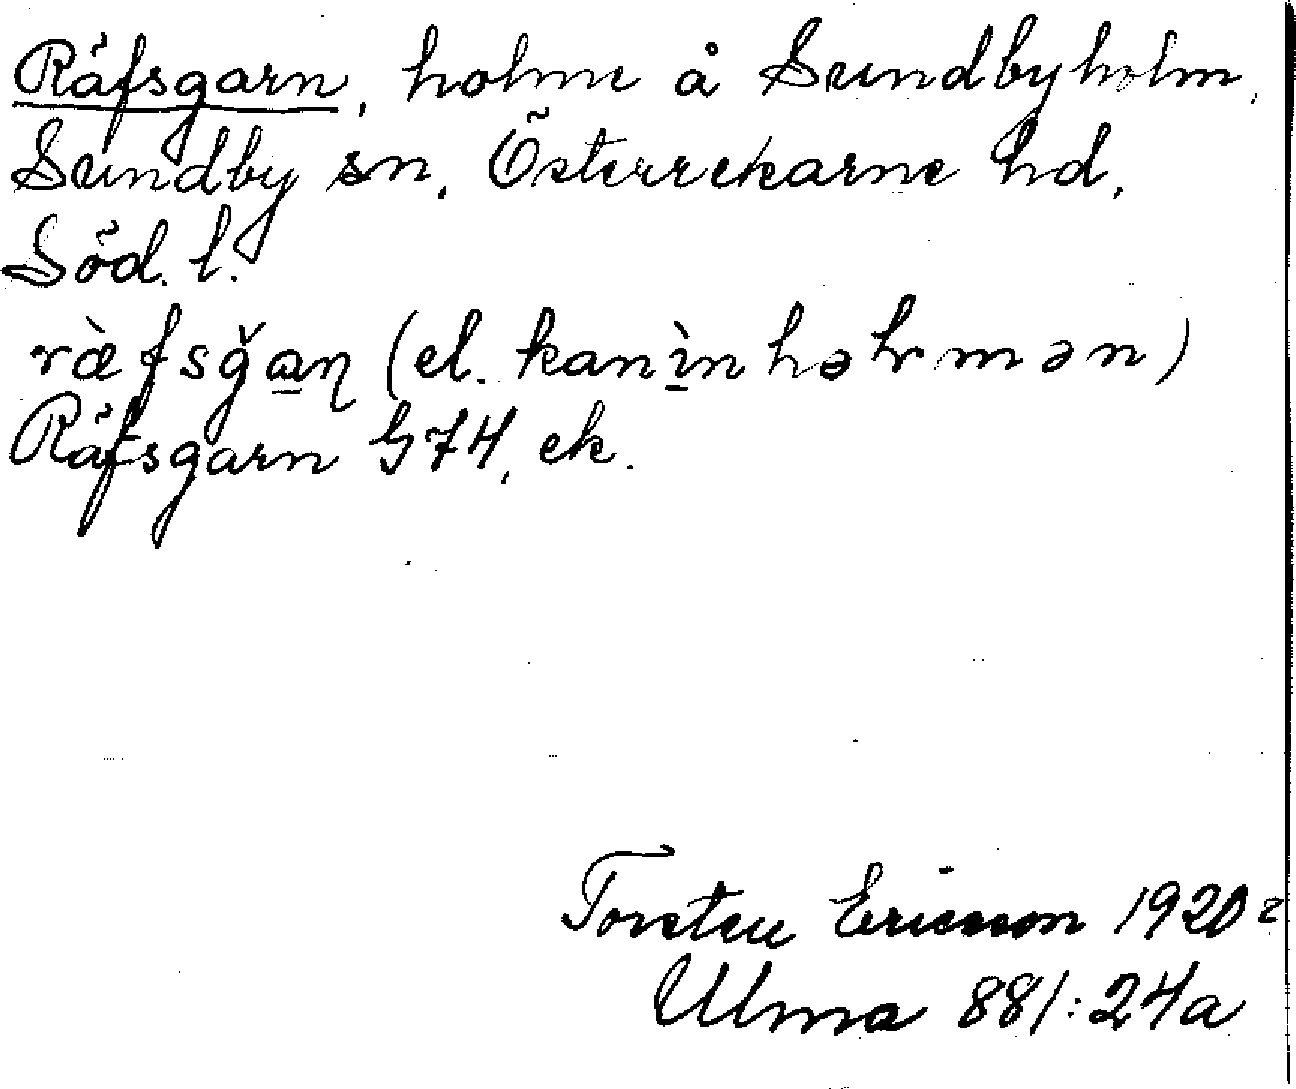 Räfsgarn, holme å Sundbyholm,
Sundby sn, Österrekarne hd,
Söd. l.
ràefsğaņ (el. kanìnhəlmən)
Räfsgarn G74, ek.
Torsten Ericsson 1920
Ulma 881:24a